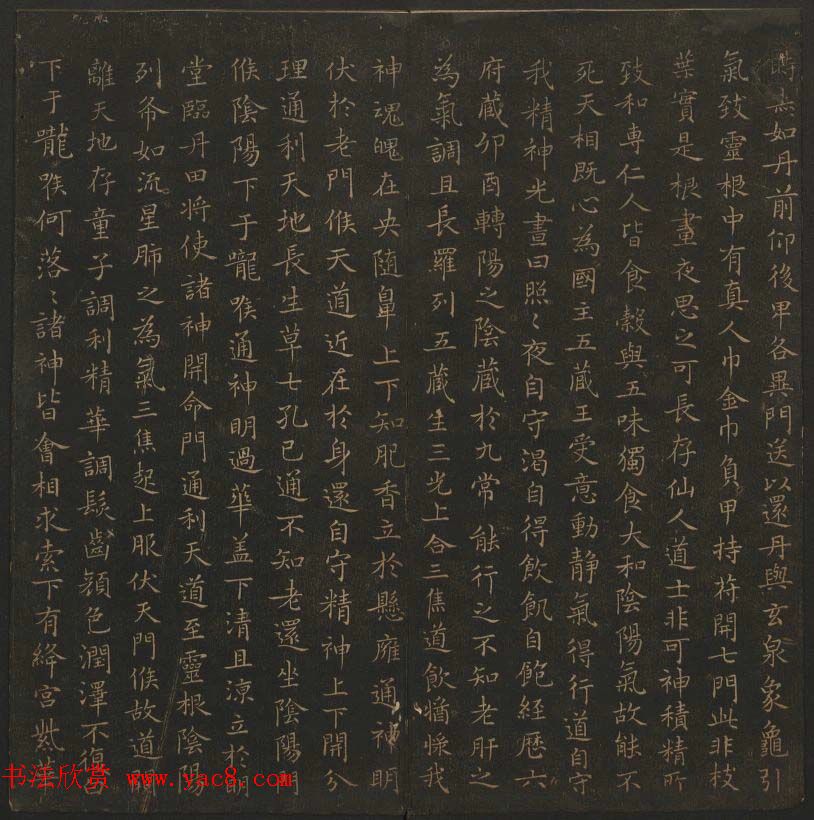 時與如丹前仰後甲各異門送以還丹與玄泉象龜引
氣致靈根中有真人巾金巾負甲持苻開七門此非枝
葉實是根晝夜思之可長存仙人道士非可神積精所
致和專仁人皆食穀與五味獨食大和陰陽氣故能不
死天相既心為國主五藏王受意動静氣得行道自守
我精神光晝日照〻夜自守渴自得飲飢自飽經歷六
府藏卯酉轉陽之陰藏於九常能行之不知老肝之
為氣調且長羅列五藏生三光上合三焦道飲
我
神魂魄在央随鼻上下知肥香立於懸廱通神明
伏於老門候天道近在於身還自守精神上下開分
理通利天地長生草七孔已通不知老還坐陰陽門
候陰陽下于嚨喉通神明過華盖下清且涼立於明
堂臨丹田将使諸神開命門通利天道至靈根陰陽
列布如流星肺之為氣三焦起上服伏天門候故道
離天地存童子調利精華調髮齒顏色潤澤不復白
下于嚨喉何落〻諸神皆會相求索下有絳宫紫華
书法欣赏 www.yac8.com